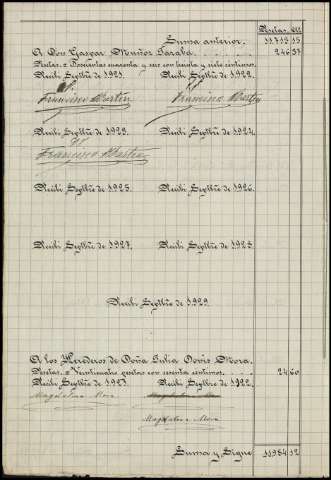 Pesetas Cts
Suma anterior. 11.713 15
A Don Gaspar Muñoz Jaraba. 246 37
Pesetas. = Doscientas cuarenta y seis con treinta y siete céntimos.
Recibí Sepbre de 1921. Recibí Sepbre de 1922.
Francisco Martín Francisco Martín
Recibí Sepbre de 1923. Recibí Sepbre de 1924.
Francisco Martín
Recibí Sepbre de 1925. Recibí Sepbre de 1926.
Recibí Sepbre de 1927. Recibí Sepbre de 1928.
Recibí Sepbre de 1929
A los Herederos de Doña Julia Mora.
Pesetas. = Veinticuatro pesetas con sesenta céntimos. 24 60
Recibí Sepbre de 1923. Recibí Sepbre de 1922.
Magdalena Mora Magdalena Mora
Magdalena Mora
Suma y Sigue 11984 12